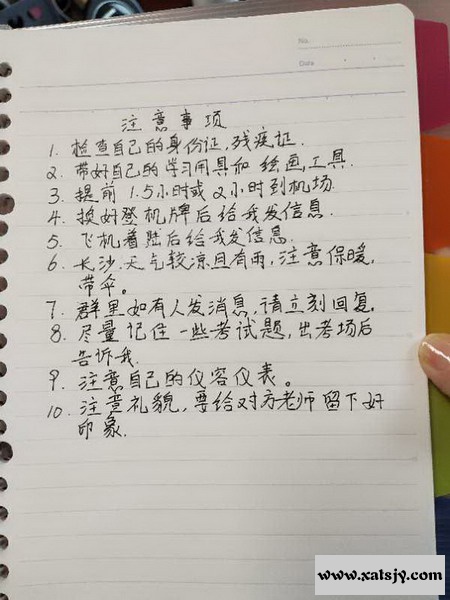 No.
Date
注意事项
1. 检查自己的身份证,残疾证.
2. 带好自己的学习用具和绘画工具.
3. 提前1.5小时或2小时到机场.
4. 换好登机牌后给我发信息.
5. 飞机着陆后给我发信息.
6. 长沙天气较凉且有雨,注意保暖,
带伞。
7. 群里如有人发消息,请立刻回复.
8. 尽量记住一些考试题,出考场后
告诉我.
9. 注意自己的仪容仪表。
10. 注意礼貌,要给对方老师留下好
印象.
www.xatsjy.com